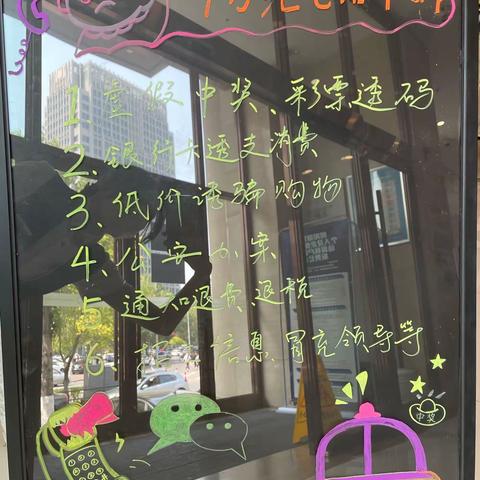 1、虚假中奖、彩票透码
2、银行卡透支消费
3、低价诱骗购物
4、公安办案
5、通知退费退税
6、信息冒充领导等
中奖